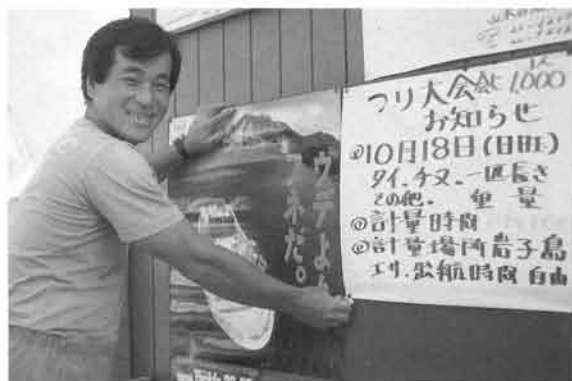 つり大会 1人 1,000
お知らせ
◎10月18日(日旺)
タイ.チヌ.一匹長さ
その他. 重量
◎計量時間
◎計量場所岩子島
エサ.出航時間 自由
ウデよ
だ。